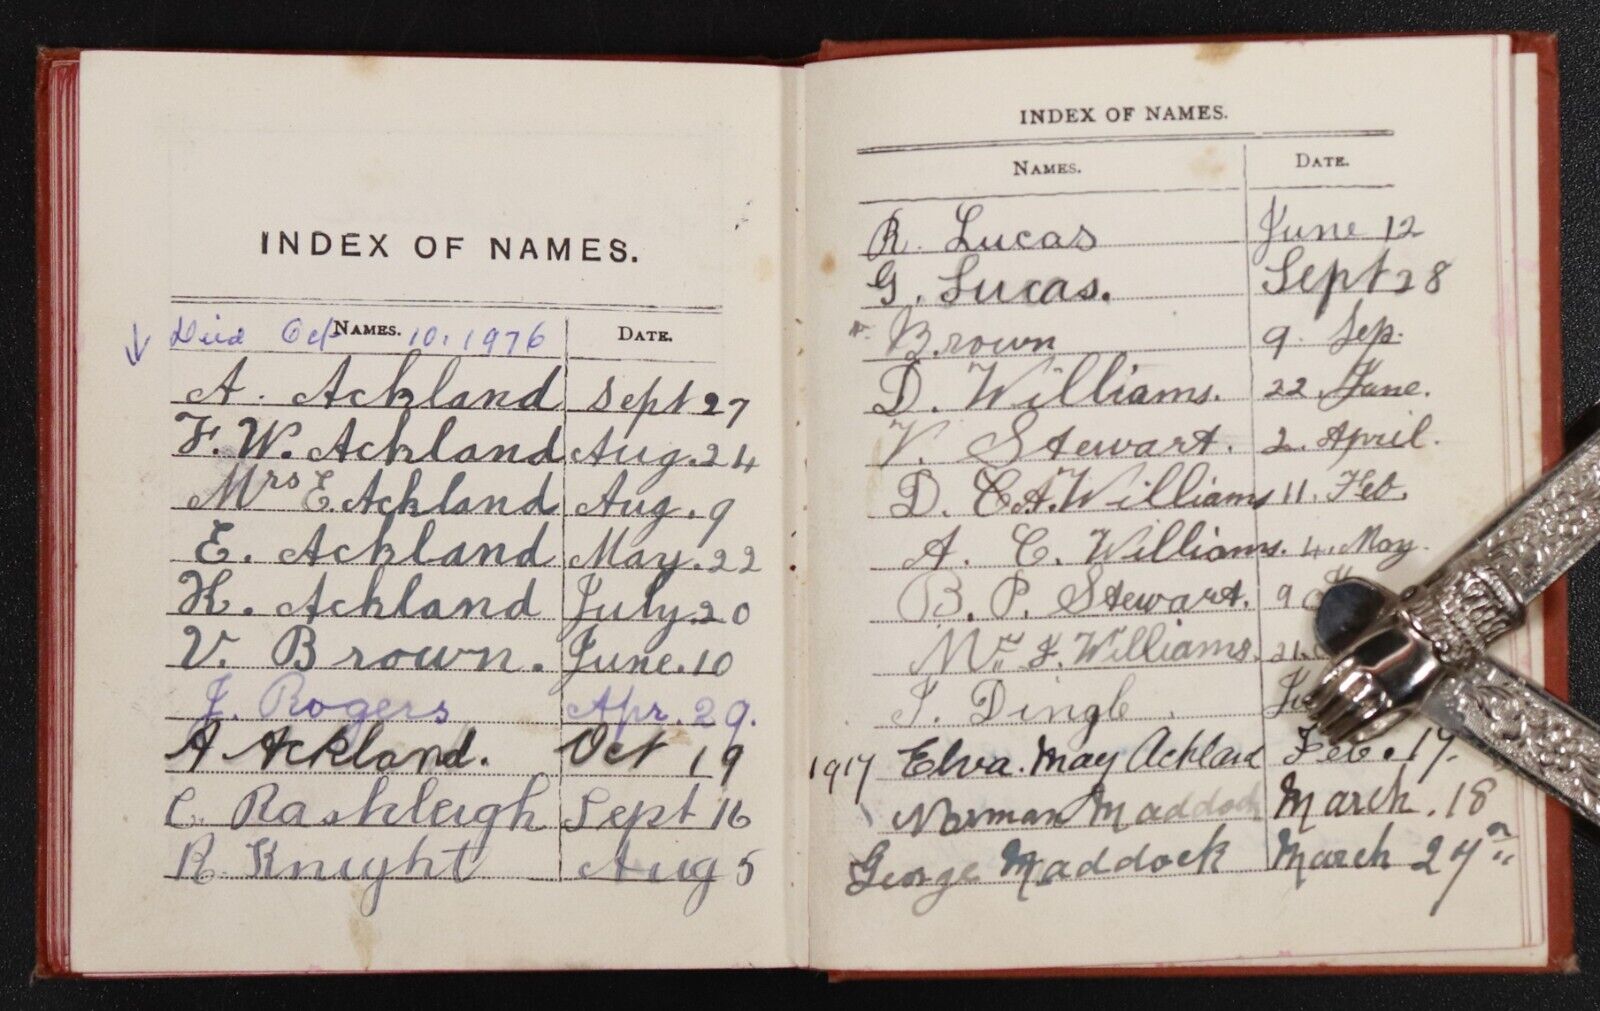 INDEX OF NAMES.
Died Oct 10, 1976
NAMES. DATE.
A. Ackland Sept 27
F. W. Ackland Aug. 24
Mrs E Ackland Aug. 9
E. Ackland May. 22
H. Ackland July. 20
V. Brown. June. 10
J. Rogers Apr. 29.
A Ackland. Oct 19
C. Rashleigh Sept 16
R. Knight Aug 5
INDEX OF NAMES.
NAMES. DATE.
R. Lucas June 12
G. Lucas. Sept 28
Brown 9. Sep.
D. Williams. 22 June.
V. Stewart. 2. April.
D. C. A. Williams 11. Feb.
A. C. Williams. 4. May.
B. P. Stewart. 9
Mr. F. Williams. 21.
Dingle
1917 Elva. May Ackland Feb. 17.
Norman Maddock March. 18
George Maddock March 27